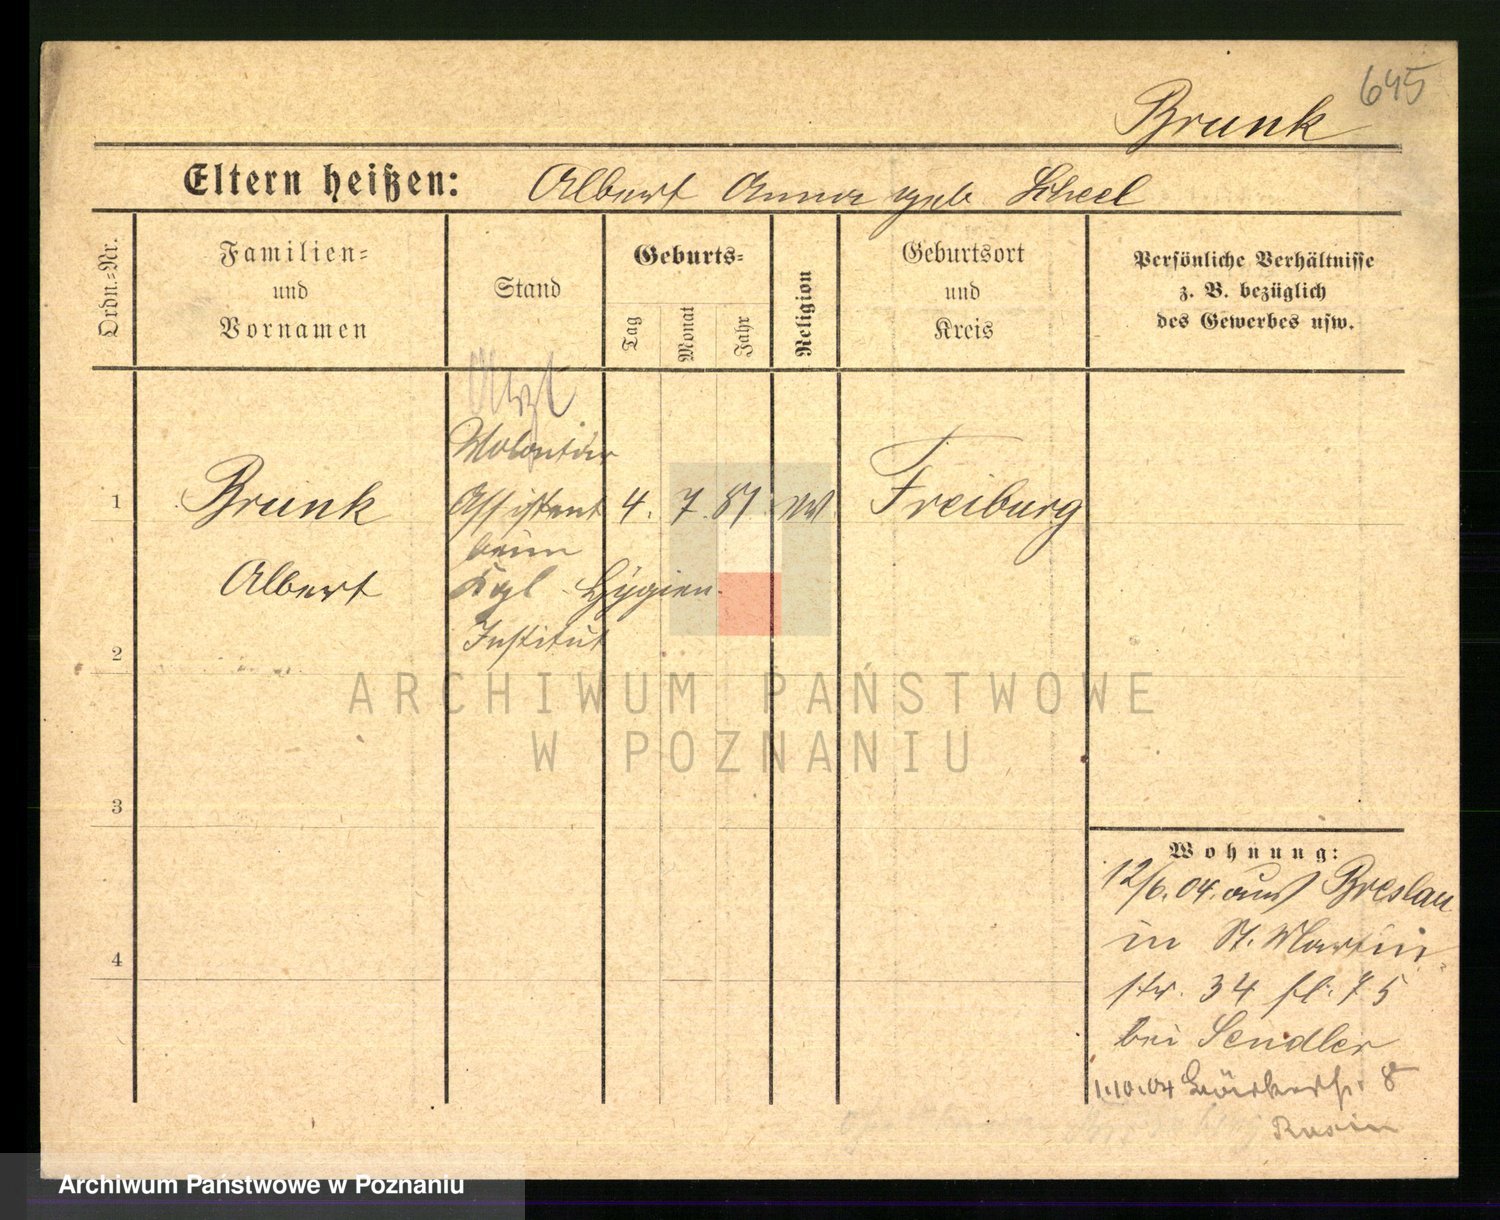 645
Brunk
Eltern heißen: Albert Anna geb Scheel
Ordn.-Nr.
Familien-
und
Vornamen
Stand
Geburts-
Tag
Monat
Jahr
Religion
Geburtsort
und
Kreis
Persönliche Verhältnisse
z. B. bezüglich
des Gewerbes usw.
Arzt
Volontär
1 Brunk Assistent 4. 7. 81 Freiburg
beim
Albert Kgl Hygien.
Institut
2
3
4
ARCHIWUM PAŃSTWOWE
W POZNANIU
Wohnung:
12/6.04. aus Breslau
in St. Martin
str. 34 fl. 75
bei Sendler
1.10.04 8
Archiwum Państwowe w Poznaniu